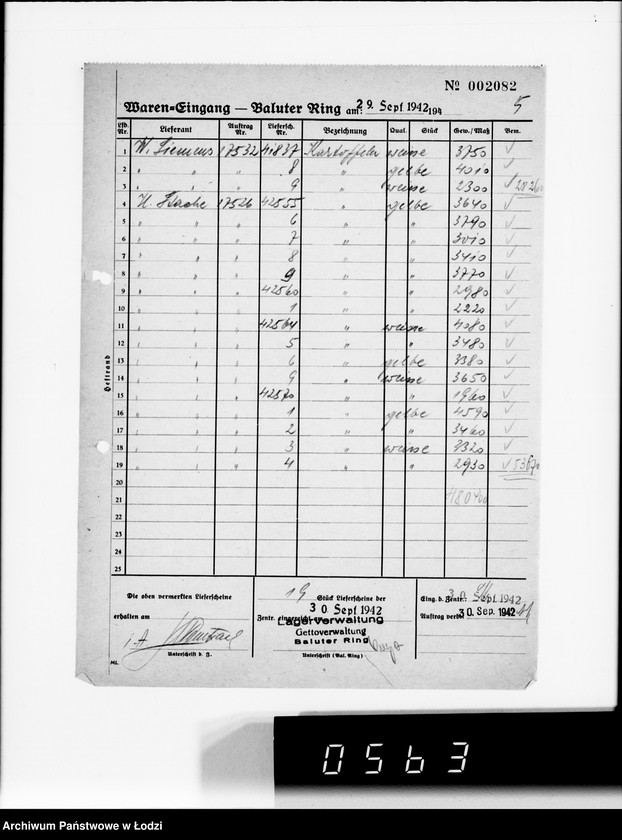 № 002082
Waren=Eingang — Baluter Ring am: 29. Sept 1942 194
5
Lfd. Nr. Lieferant Auftrag Nr. Liefersch. Nr. Bezeichnung Qual. Stück Gew./Maß Bem.
1 W. Siemens 17532 41837 Kartoffeln weisse 3750 ✓
2 " " " 8 " gelbe 4010 ✓
3 " " " 9 " weisse 2300 ✓
4 H. 17526 42555 " gelbe 3640 ✓
5 " " " 6 " " 3790 ✓
6 " " " 7 " " 3010 ✓
7 " " " 8 " " 3410 ✓
8 " " " 9 " " 3770 ✓
9 " " " 42560 " " 2980 ✓
10 " " " 1 " " 2220 ✓
11 " " " 42564 " weisse 4080 ✓
12 " " " 5 " " 3480 ✓
13 " " " 6 " gelbe 3380 ✓
14 " " " 9 " weisse 3650 ✓
15 " " " 42570 " " 1960 ✓
16 " " " 1 " gelbe 4590 ✓
17 " " " 2 " " 3460 ✓
18 " " " 3 " weisse 3320 ✓
19 " " " 4 " " 2930 ✓
20
21
22
23
24
25
Heftrand
Die oben vermerkten Lieferscheine
erhalten am
i.A.
Unterschrift d. J.
HL.
19 Stück Lieferscheine der
30. Sept 1942
Zentr. eingereicht
Lagerverwaltung
Gettoverwaltung
Baluter Ring
Unterschrift (Bal. Ring)
Eing. b. Zentr.: 30. Sept. 1942
Auftrag verb.: 30. Sep. 1942
0563
Archiwum Państwowe w Łodzi